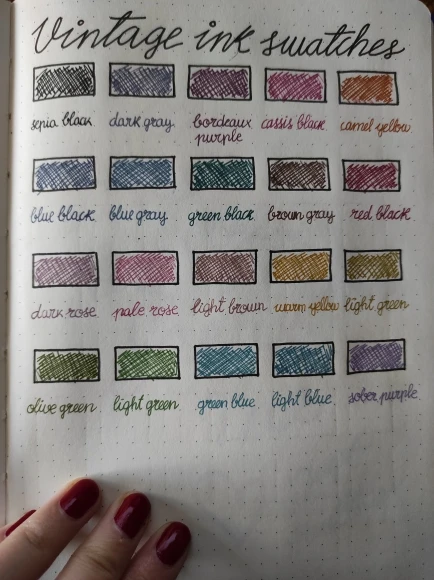 Vintage ink swatches
sepia black dark gray bordeaux purple cassis black camel yellow
blue black blue gray green black brown gray red black
dark rose pale rose light brown warm yellow light green
olive green light green green blue light blue sober purple